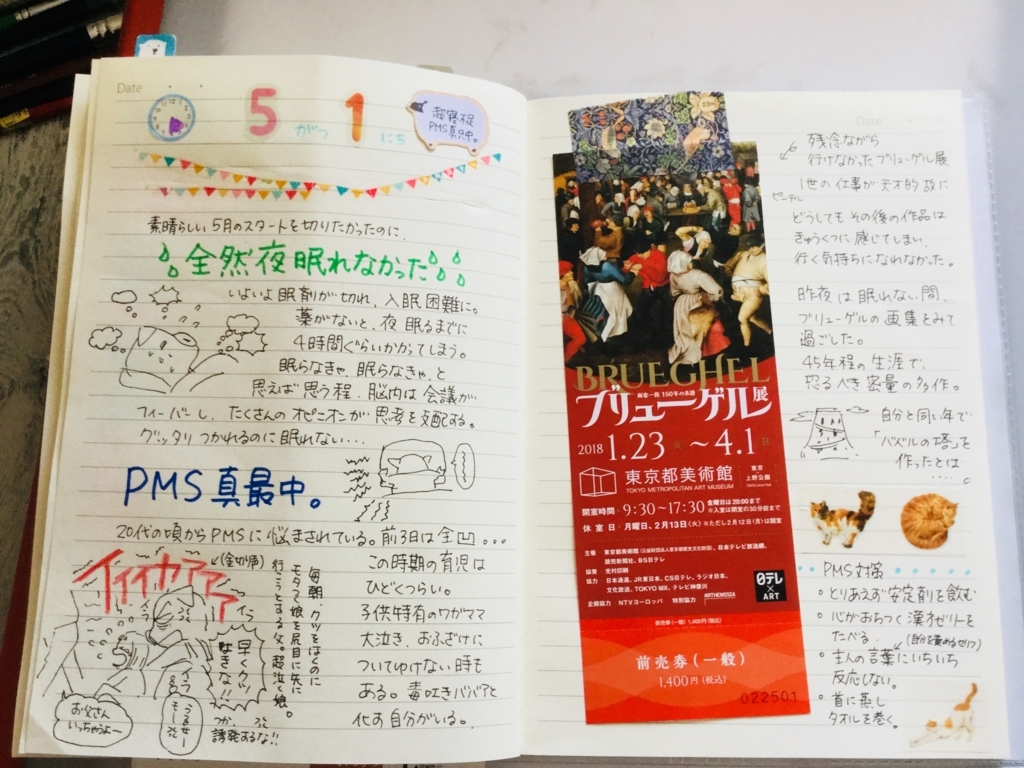 Date
5 がつ 1 にち
超寝不足
PMS真只中。
素晴らしい5月のスタートを切りたかったのに、
全然夜眠れなかった
いよいよ眠剤が切れ、入眠困難に。
薬がないと、夜眠るまでに
4時間ぐらいかかってしまう。
眠らなきゃ、眠らなきゃ、と
思えば思う程、脳内は会議が
フィーバーし、たくさんのオピニオンが思考を支配する。
グッタリつかれるのに眠れない…
PMS真最中。
20代の頃からPMSに悩まされている。前3日は全凹…
この時期の育児は
ひどくつらい。
子供特有のワガママ
大泣き、おふざけに
ついてゆけない時も
ある。毒吐きババアと
化す自分がいる。
イイイカアアア
(金切り声)
毎朝、クツをはくのに
モタつく娘を尻目に先に
行こうとする父。超泣く娘。
早くクツ
はきな!!
お父さん
いっちゃうよー
うるせー
もしっ
つか、
誘発するな!!
Date
残念ながら
行けなかったブリューゲル展
1世の仕事が天才的故に
ピーテル
どうしてもその後の作品は
きゅうくつに感じてしまい、
行く気持ちになれなかった。
昨夜は眠れない間、
ブリューゲルの画集をみて
過ごした。
45年程の生涯で、
恐るべき密量の多作。
自分と同じ年で
「バベルの塔」を
作ったとは
……。
PMS対策
・とりあえず安定剤を飲む
・心がおちつく漢方ゼリーを
たべる。
(自分を責めるセリフ)
・主人の言葉にいちいち
反応しない。
・首に蒸し
タオルを巻く。
BRUEGHEL
画家一族 150年の系譜
ブリューゲル展
2018 1.23 火 ～4.1 日
東京都美術館
TOKYO METROPOLITAN ART MUSEUM
東京
上野公園
開室時間 9:30～17:30 金曜日は20:00まで
※入室は閉室の30分前まで
休室日 月曜日、2月13日(火)※ただし2月12日(月)は開室
主催 東京都美術館(公益財団法人東京都歴史文化財団)、日本テレビ放送網、
読売新聞社、BS日テレ
協賛 光村印刷
協力 日本通運、JR東日本、CS日テレ、ラジオ日本、
文化放送、TOKYO MX、テレビ神奈川
企画協力 NTVヨーロッパ 特別協力 ARTHEMISIA
日テレ
×
ART
前売券(一般) 1,400円(税込)
前売券(一般)
1,400円(税込)
022501